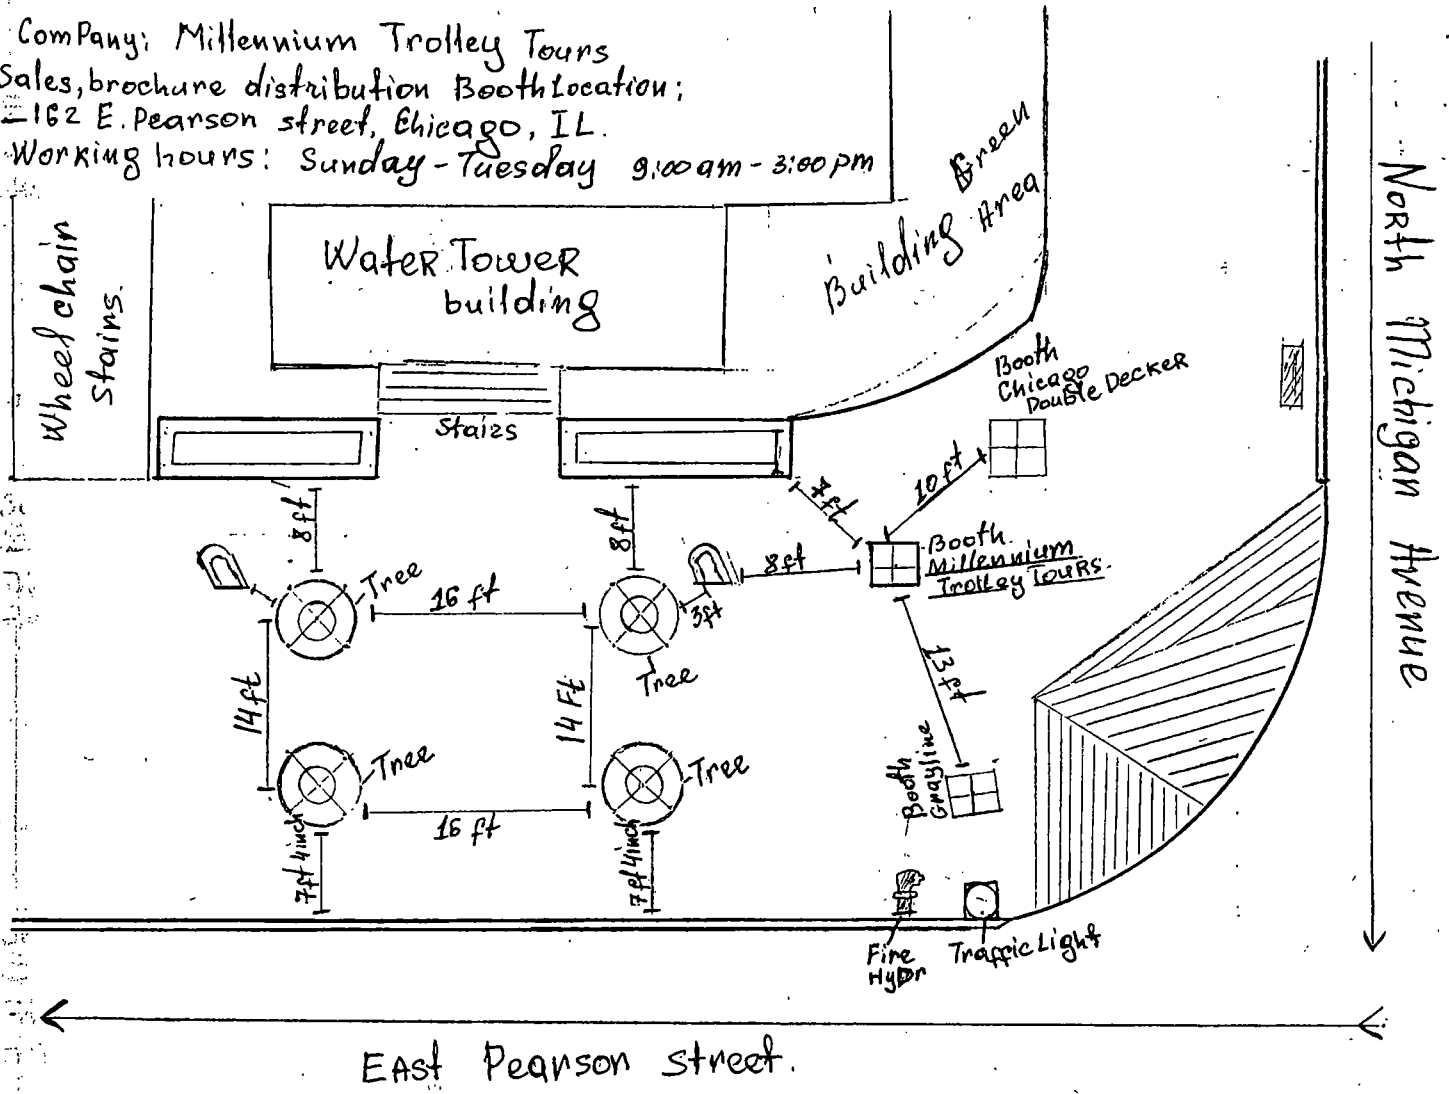 Company: Millennium Trolley Tours
Sales, brochure distribution Booth Location;
162 E. Pearson street, Chicago, IL.
Working hours: Sunday - Tuesday 9:00 am - 3:00 pm
Wheel chain
stairs.
Water Tower
building
Stairs
Green
Building Area
North Michigan Avenue
Booth
Chicago
Double Decker
10 ft
7 ft
8 ft
8 ft
8 ft
Booth.
Millennium
Trolley Tours.
Tree
16 ft
3 ft
Tree
14 ft
14 Ft
13 ft
Booth
Grayline
Tree
Tree
16 ft
7 ft 4 inch
7 ft 4 inch
Fire
Hydr
Traffic Light
East Pearson street.